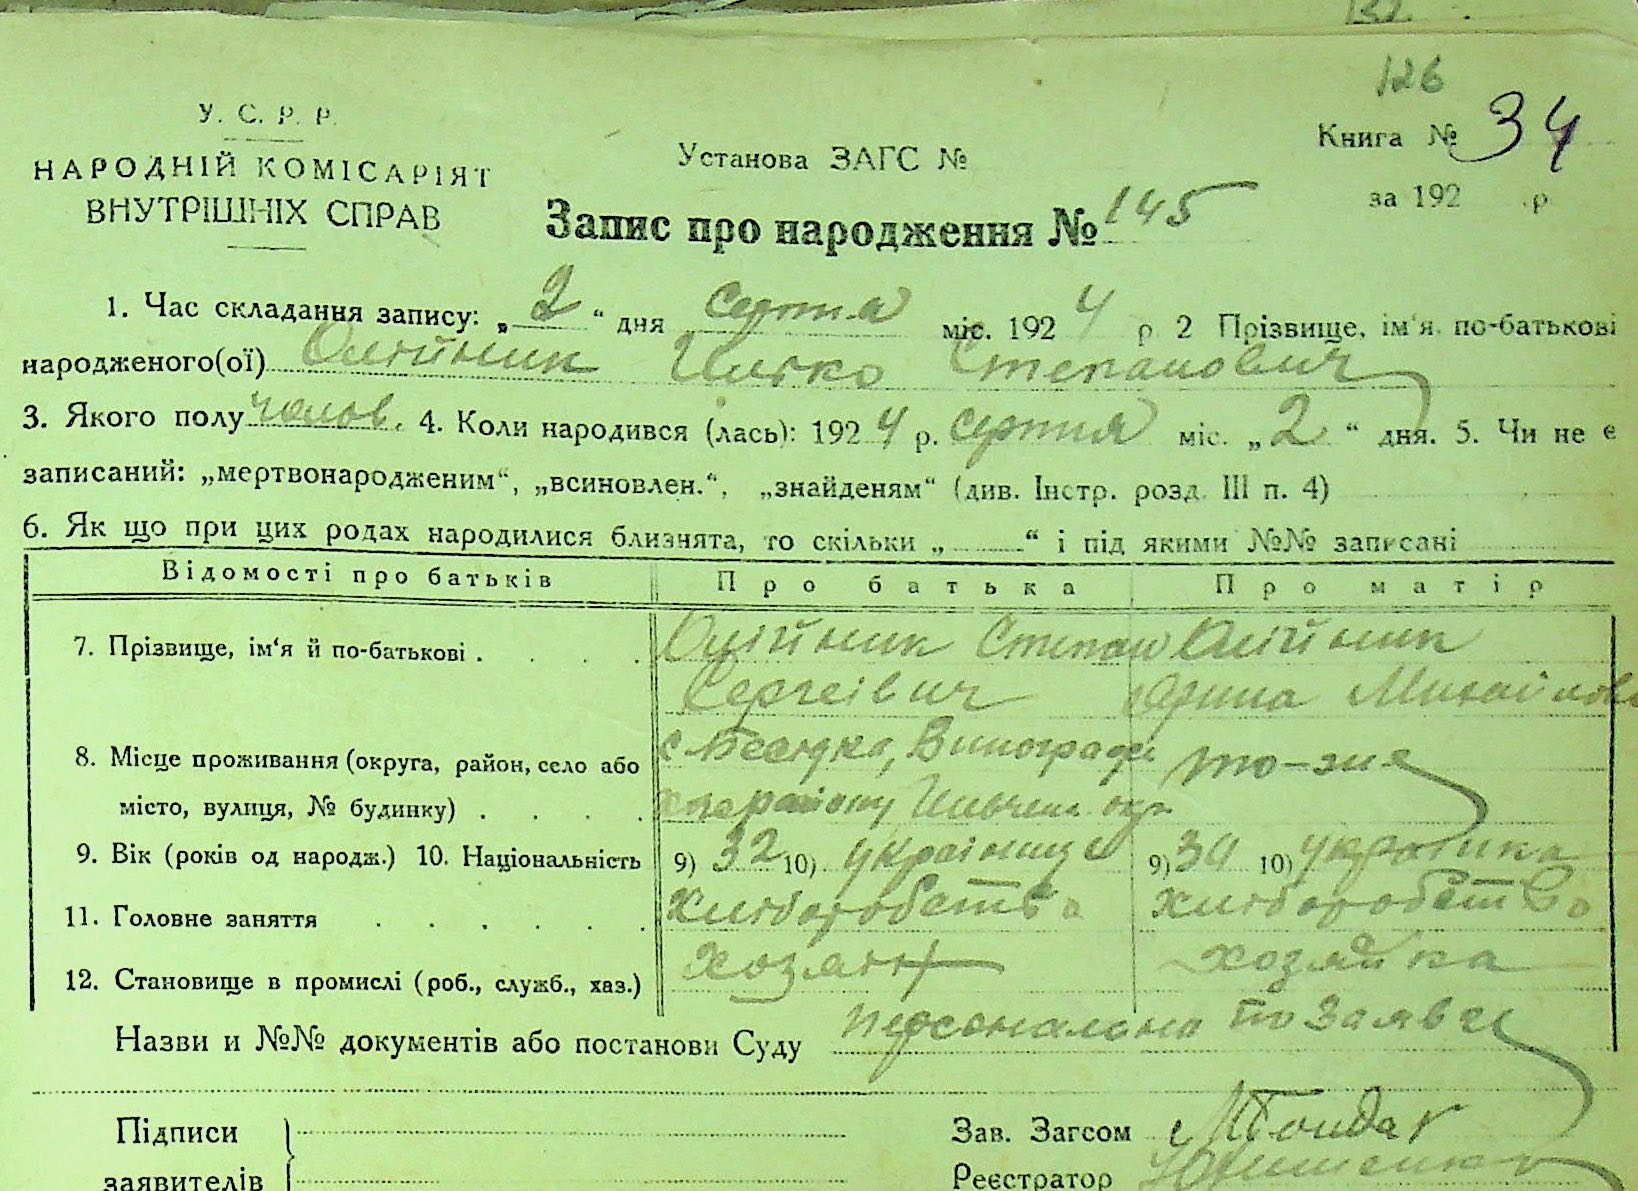 126
У. С. Р. Р.
НАРОДНІЙ КОМІСАРІЯТ
ВНУТРІШНІХ СПРАВ
Установа ЗАГС №
Книга № 34
за 192 р
Запис про народження № 145
1. Час складання запису: „ 2 “ дня серпня міс. 192 4 р 2 Прізвище, ім'я по-батькові
народженого(ої) Олійник Илько Степанович
3. Якого полу чолов. 4. Коли народився (лась): 192 4 р. серпня міс. „ 2 “ дня. 5. Чи не є
записаний: „мертвонародженим“, „всиновлен.“, „знайденям“ (див. Інстр. розд. III п. 4)
6. Як що при цих родах народилися близнята, то скільки „ “ і під якими №№ записані
Відомості про батьків Про батька Про матір
7. Прізвище, ім‘я й по-батькові . . . . Олійник Степан Олійник
Сергеівич Михайлов
8. Місце проживання (округа, район, село або с , Виноград то-же
місто, вулиця, № будинку) . . . . району окр
9. Вік (років од народж.) 10. Національність 9) 32 10) українец 9) 30 10) українка
11. Головне заняття . . . . . . Хліборобство хліборобство
12. Становище в промислі (роб., служб., хаз.) хозяин хозяйка
Назви и №№ документів або постанови Суду персонально по заявці
Підписи
заявителів
Зав. Загсом
Реєстратор